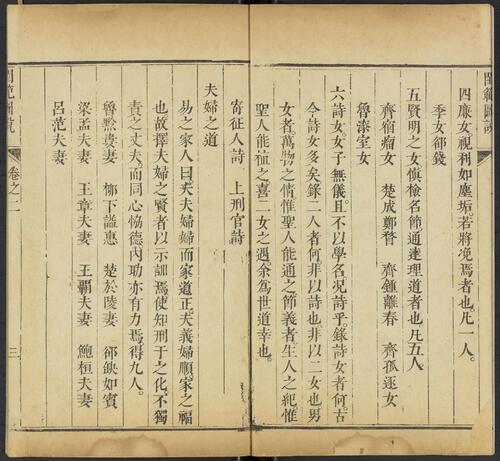 閨範圖說
四廉女視利如塵垢若將凂焉者也凡一人。
季女郤錢
五賢明之女愼檢名節通達理道者也凡五人。
齊宿瘤女　楚成鄭瞀　齊鍾離春　齊孤逐女
魯漆室女
六詩女女子無儀且不以學名况詩乎錄詩女者何古
今詩女多矣錄二人者何非以詩也非以二女也男
女者萬物之情惟聖人能通之節義者生人之紀惟
聖人能植之喜二女之遇余爲世道幸也。
寄征人詩　上刑官詩
夫婦之道
易之家人曰夫夫婦婦而家道正夫義婦順家之福
也故擇夫婦之賢者以示訓焉使知刑于之化不獨
責之丈夫而同心恊德內功亦有力焉得九人。
魯黔婁妻　柳下謚惠　楚於陵妻　郤缺如賓
梁孟夫妻　王章夫妻　王霸夫妻　鮑桓夫妻
呂范夫妻
閨範圖說　卷之二　三